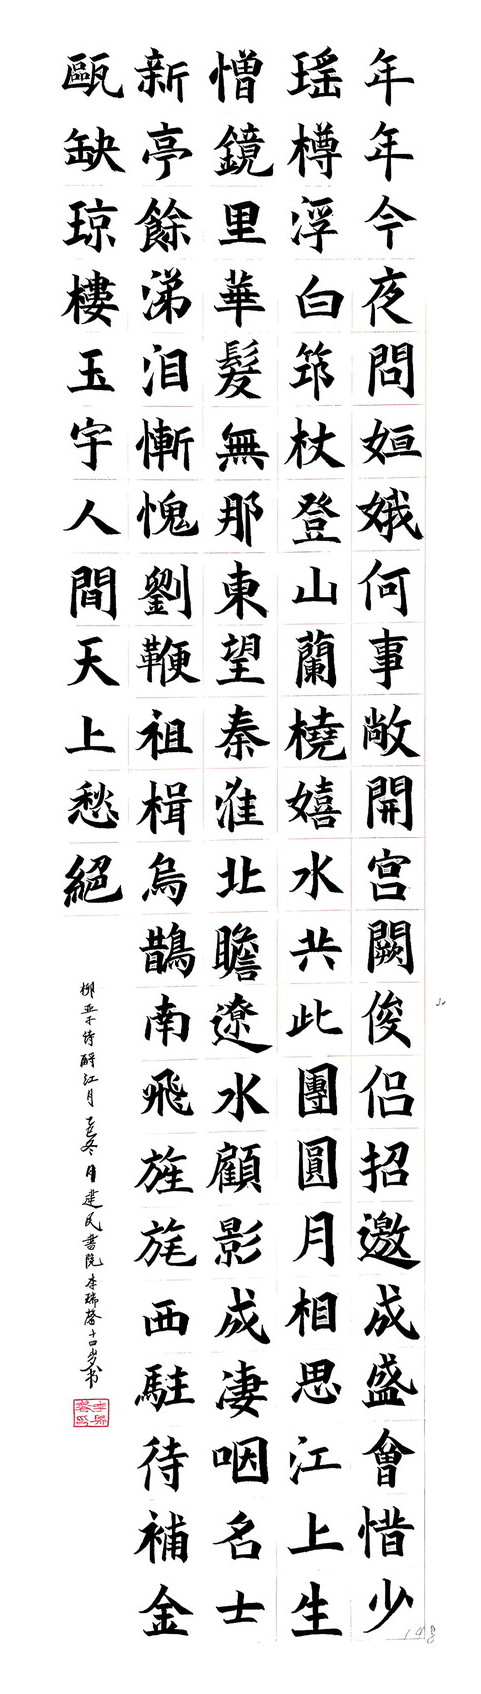 年年今夜問姮娥何事敞開宮闕俊侣招邀成盛會惜少
瑶樽浮白笻杖登山蘭橈嬉水共此團圓月相思江上生
憎鏡里華髮無那東望秦淮北瞻遼水顧影成凄咽名士
新亭餘涕泪慚愧劉鞭祖楫烏鵲南飛旌旄西駐待補金
甌缺瓊樓玉宇人間天上愁絕
柳亞子詩酹江月 乙巳冬月建民書院李瑞馨十四岁书